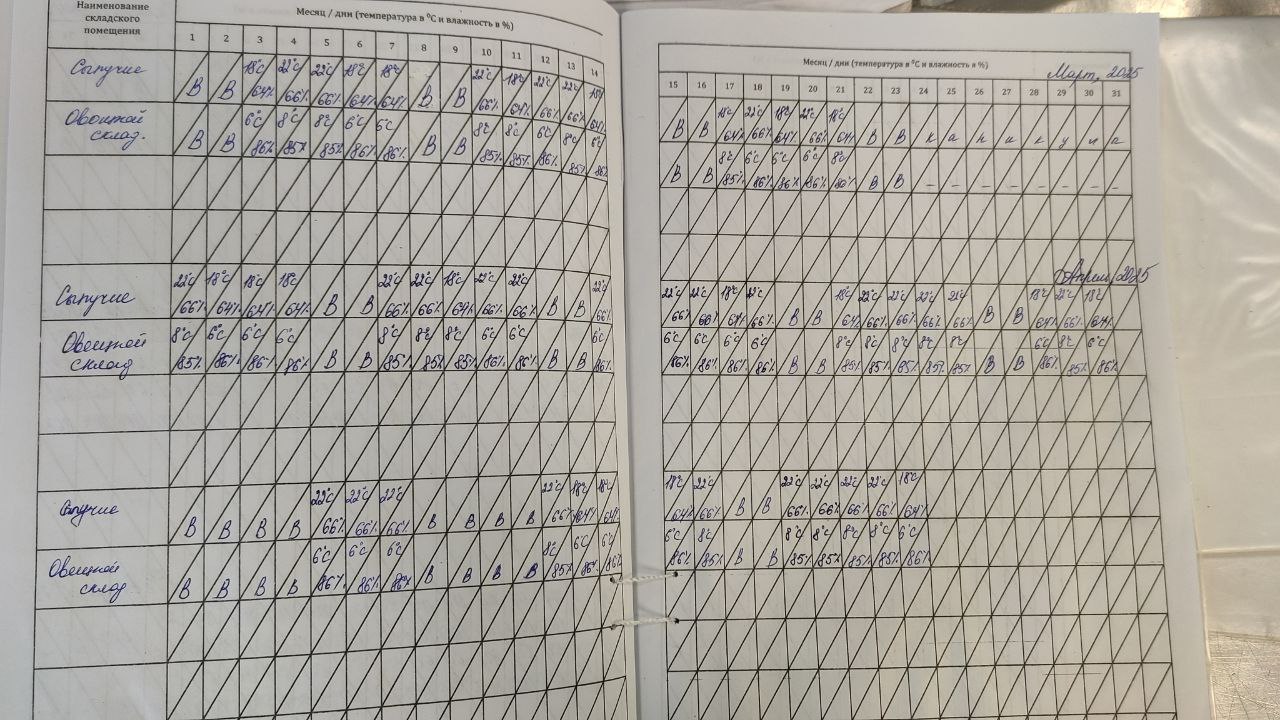 Наименование складского помещения
Месяц / дни (температура в ⁰С и влажность в %)
1 2 3 4 5 6 7 8 9 10 11 12 13 14
Сыпучие
В В 18°С 64% 22°С 66% 22°С 66% 18°С 64% 18°С 64% В В 22°С 66% 18°С 64% 22°С 66% 22°С 66% 18°С 64%
Овощной склад.
В В 6°С 86% 8°С 85% 8°С 85% 6°С 86% 6°С 86% В В 8°С 85% 8°С 85% 6°С 86% 8°С 85% 6°С 86%
Сыпучие
22°С 66% 18°С 64% 18°С 64% 18°С 64% В В 22°С 66% 22°С 66% 18°С 64% 22°С 66% 22°С 66% В В 22°С 66%
Овощной склад
8°С 85% 6°С 86% 6°С 86% 6°С 86% В В 8°С 85% 8°С 85% 8°С 85% 6°С 86% 6°С 86% В В 6°С 86%
Сыпучие
В В В В 22°С 66% 22°С 66% 22°С 66% В В В В 22°С 66% 18°С 64% 18°С 64%
Овощной склад
В В В В 6°С 86% 6°С 86% 6°С 86% В В В В 8°С 85% 6°С 86% 6°С 86%
Месяц / дни (температура в ⁰С и влажность в %)
Март, 2025
15 16 17 18 19 20 21 22 23 24 25 26 27 28 29 30 31
В В 18°С 64% 22°С 66% 18°С 64% 22°С 66% 18°С 64% В В к а н и к у л а
В В 8°С 85% 6°С 86% 6°С 86% 6°С 86% 8°С В В – – – – – – – –
Апрель, 2025
22°С 66% 22°С 66% 18°С 64% 22°С 66% В В 18°С 64% 22°С 66% 22°С 66% 22°С 66% 22°С 66% В В 18°С 64% 22°С 66% 18°С 64%
6°С 86% 6°С 86% 6°С 86% 6°С 86% В В 8°С 85% 8°С 85% 8°С 85% 8°С 85% 8°С 85% В В 6°С 86% 8°С 85% 6°С 86%
18°С 64% 22°С 66% В В 22°С 66% 22°С 66% 22°С 66% 22°С 66% 18°С 64%
6°С 86% 8°С 85% В В 8°С 85% 8°С 85% 8°С 85% 8°С 85% 6°С 86%